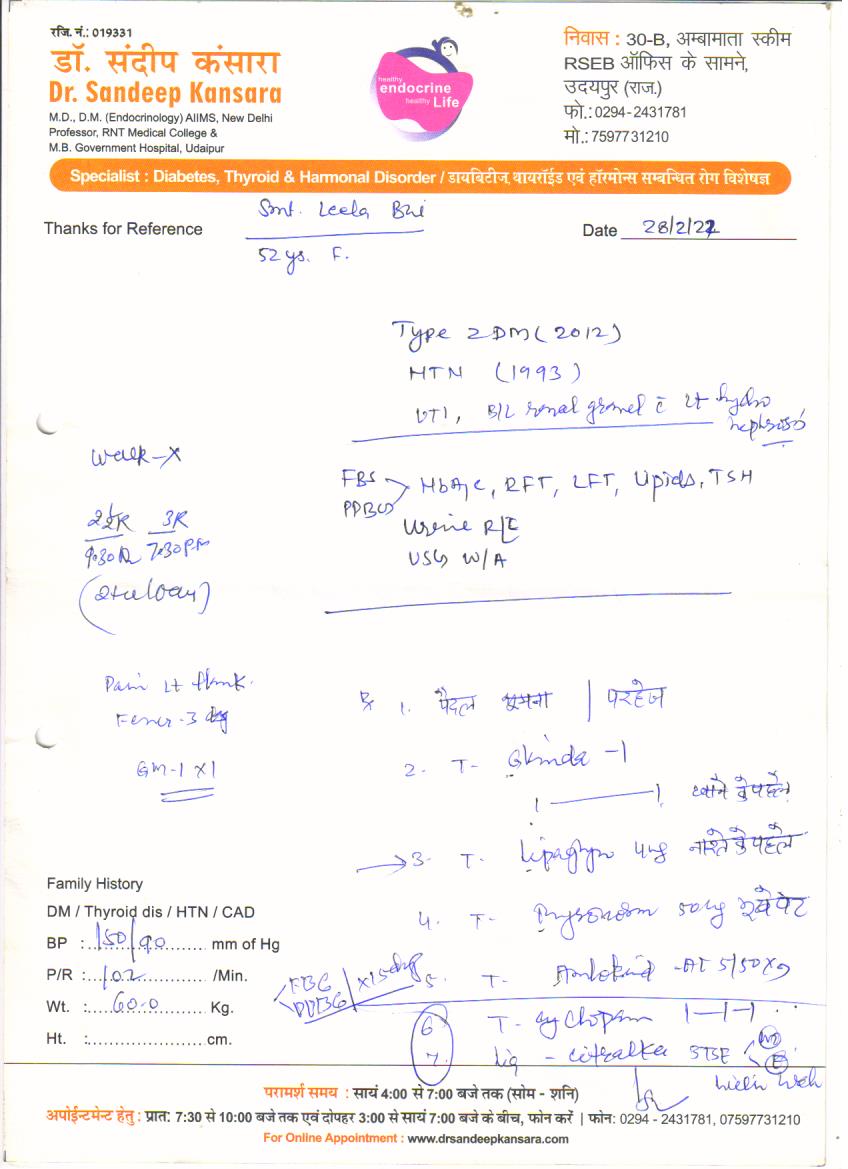 रजि. नं.: 019331
डॉ. संदीप कंसारा
Dr. Sandeep Kansara
M.D., D.M. (Endocrinology) AIIMS, New Delhi
Professor, RNT Medical College &
M.B. Government Hospital, Udaipur
healthy
endocrine
healthy Life
निवास : 30-B, अम्बामाता स्कीम
RSEB ऑफिस के सामने,
उदयपुर (राज.)
फो.: 0294-2431781
मो.: 7597731210
Specialist : Diabetes, Thyroid & Harmonal Disorder / डायबिटीज, थायरॉईड एवं हॉरमोन्स सम्बन्धित रोग विशेषज्ञ
Smt. Leela Bai
Thanks for Reference
Date 28/2/22
52 ys. F.
Type 2 DM (2012)
HTN (1993)
UTI, B/L renal gravel c̄ Lt hydro
nephrosis
Walk-X
FBS
PPBG
HbA1c, RFT, LFT, Lipids, TSH
Urine R/E
USG W/A
2½R 3R
7:30PM
Pain Lt flank.
Fever - 3 day
GM-1 x 1
Rx 1. पैदल घूमना | परहेज
2. T- Gkinda -1
1 —— 1 खाने के पहले
3. T- 4mg नाश्ते के पहले
4. T- 50mg
5. T- Amlokind -AT 5/50 x
FBG
PPBG
x15 day
6 T- 1—1—1
7. Liq - Citralka
Family History
DM / Thyroid dis / HTN / CAD
BP : 150/90 mm of Hg
P/R : 102 /Min.
Wt. : 60.0 Kg.
Ht. : cm.
परामर्श समय : सायं 4:00 से 7:00 बजे तक (सोम - शनि)
अपोईन्टमेन्ट हेतु : प्रात: 7:30 से 10:00 बजे तक एवं दोपहर 3:00 से सायं 7:00 बजे के बीच, फोन करें | फोन: 0294 - 2431781, 07597731210
For Online Appointment : www.drsandeepkansara.com